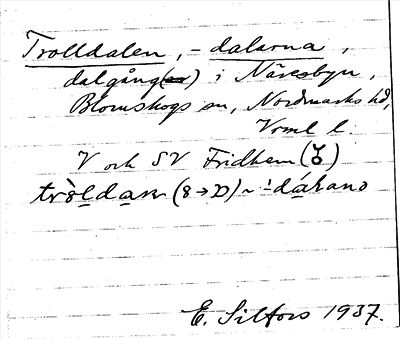 Trolldalen, -dalarna,
dalgång(ar) i Näresbyn,
Blomskogs sn, Nordmarks hd,
Vrml l.
V och SV Fridhem
E. Silfors 1937.